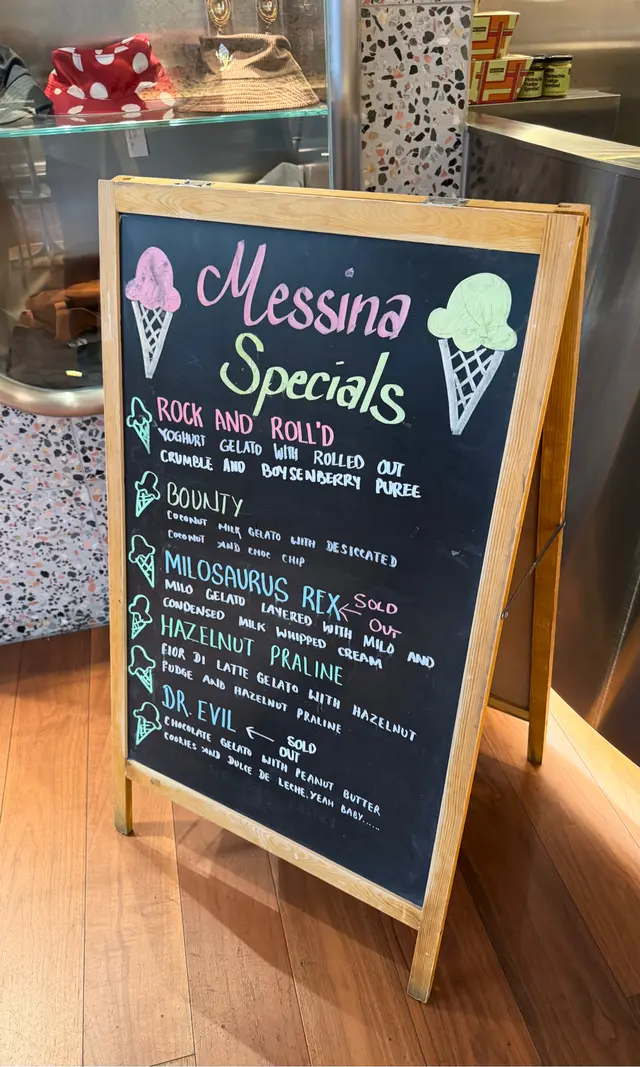 Messina
Specials
ROCK AND ROLL'D
YOGHURT GELATO WITH ROLLED OUT
CRUMBLE AND BOYSENBERRY PUREE
BOUNTY
COCONUT MILK GELATO WITH DESICCATED
COCONUT AND CHOC CHIP
MILOSAURUS REX ← SOLD OUT
MILO GELATO LAYERED WITH MILO AND
CONDENSED MILK WHIPPED CREAM
HAZELNUT PRALINE
FIOR DI LATTE GELATO WITH HAZELNUT
FUDGE AND HAZELNUT PRALINE
DR. EVIL ← SOLD OUT
CHOCOLATE GELATO WITH PEANUT BUTTER
COOKIES AND DULCE DE LECHE. YEAH BABY.....